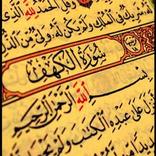 وَقُلِ الْحَمْدُ لِلَّهِ الَّذِى
شَرِيكٌ فِى الْمُلْكِ وَلَمْ يَكُن لَّهُ وَلِىٌّ مِّنَ
سُورَةُ الْكَهْفِ
بِسْمِ اللَّهِ الرَّحْمَٰنِ الرَّحِيمِ
عَلَىٰ عَبْدِهِ الْكِتَٰبَ وَلَمْ